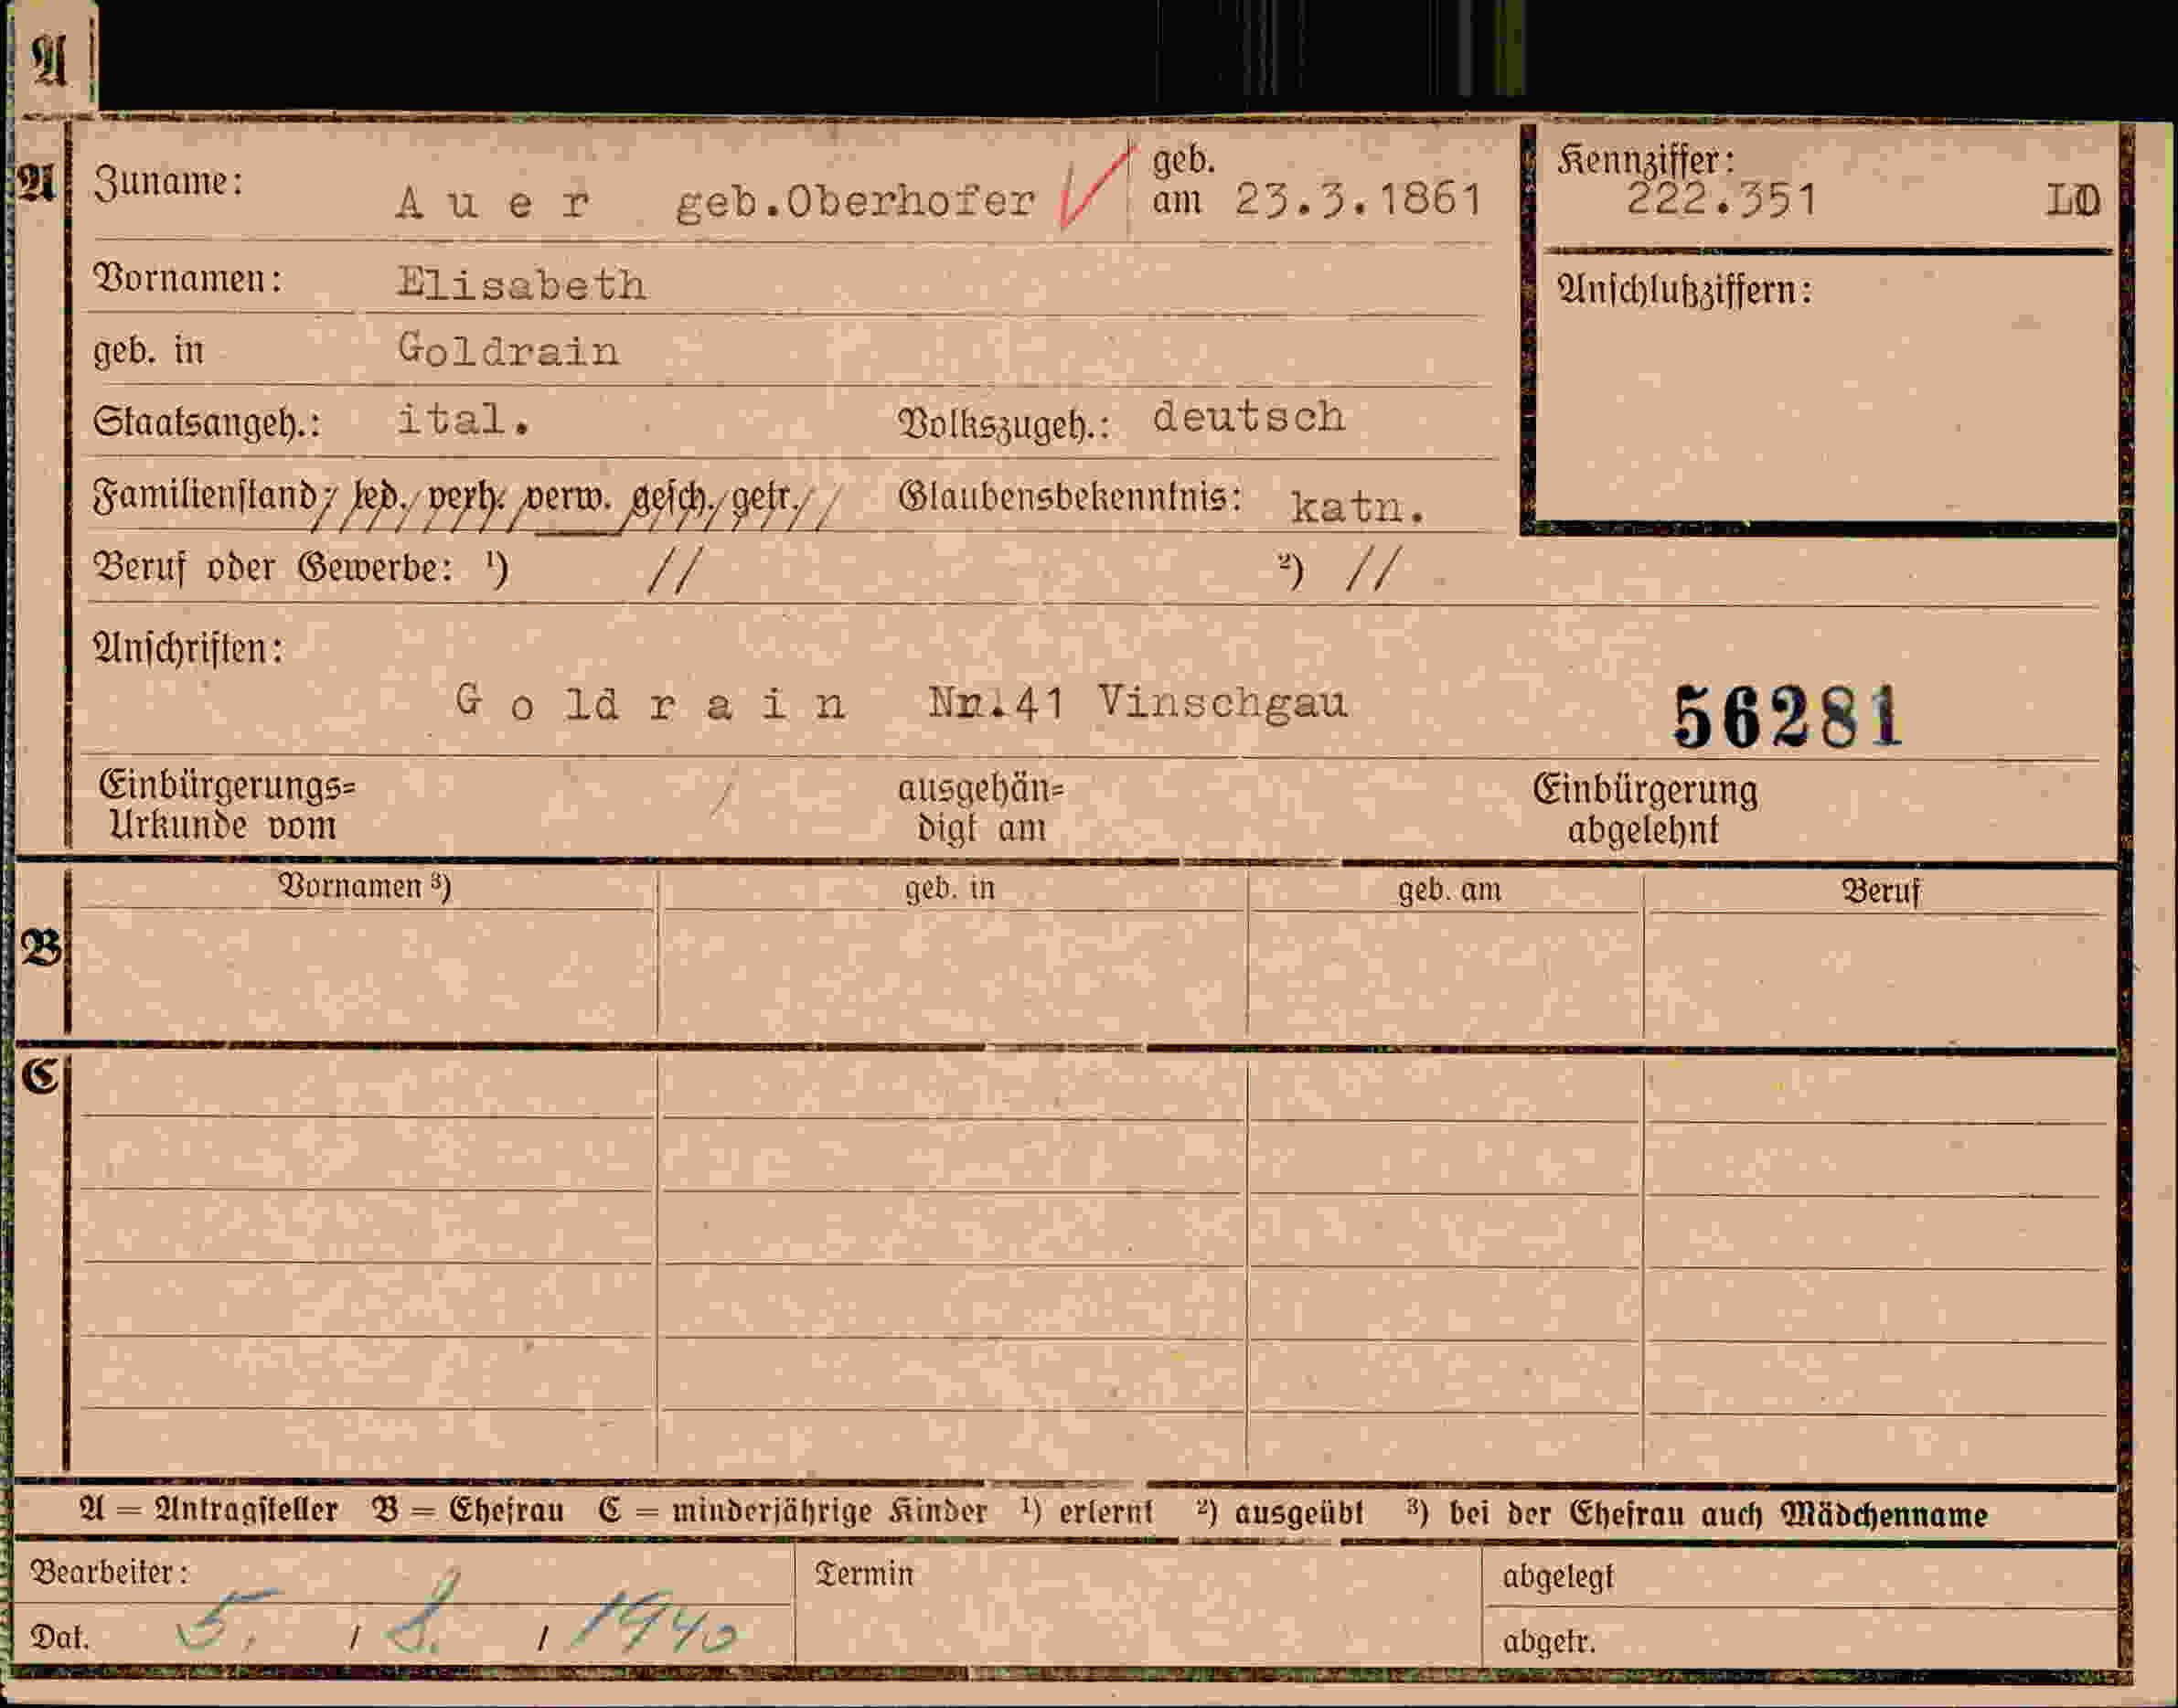 A
A
Zuname: Auer geb.Oberhofer geb. am 23.3.1861
Kennziffer: 222.351 LO
Vornamen: Elisabeth
Anschlußziffern:
geb. in Goldrain
Staatsangeh.: ital. Volkszugeh.: deutsch
Familienstand: led. verh. verw. gesch. getr. Glaubensbekenntnis: kath.
Beruf oder Gewerbe: ¹) // ²) //
Anschriften:
Goldrain Nr.41 Vinschgau 56281
Einbürgerungs= ausgehän= Einbürgerung
Urkunde vom digt am abgelehnt
Vornamen ³) geb. in geb. am Beruf
B
C
A = Antragsteller B = Ehefrau C = minderjährige Kinder ¹) erlernt ²) ausgeübt ³) bei der Ehefrau auch Mädchenname
Bearbeiter: Termin abgelegt
Dat. 5. / 8. / 1940 abgetr.